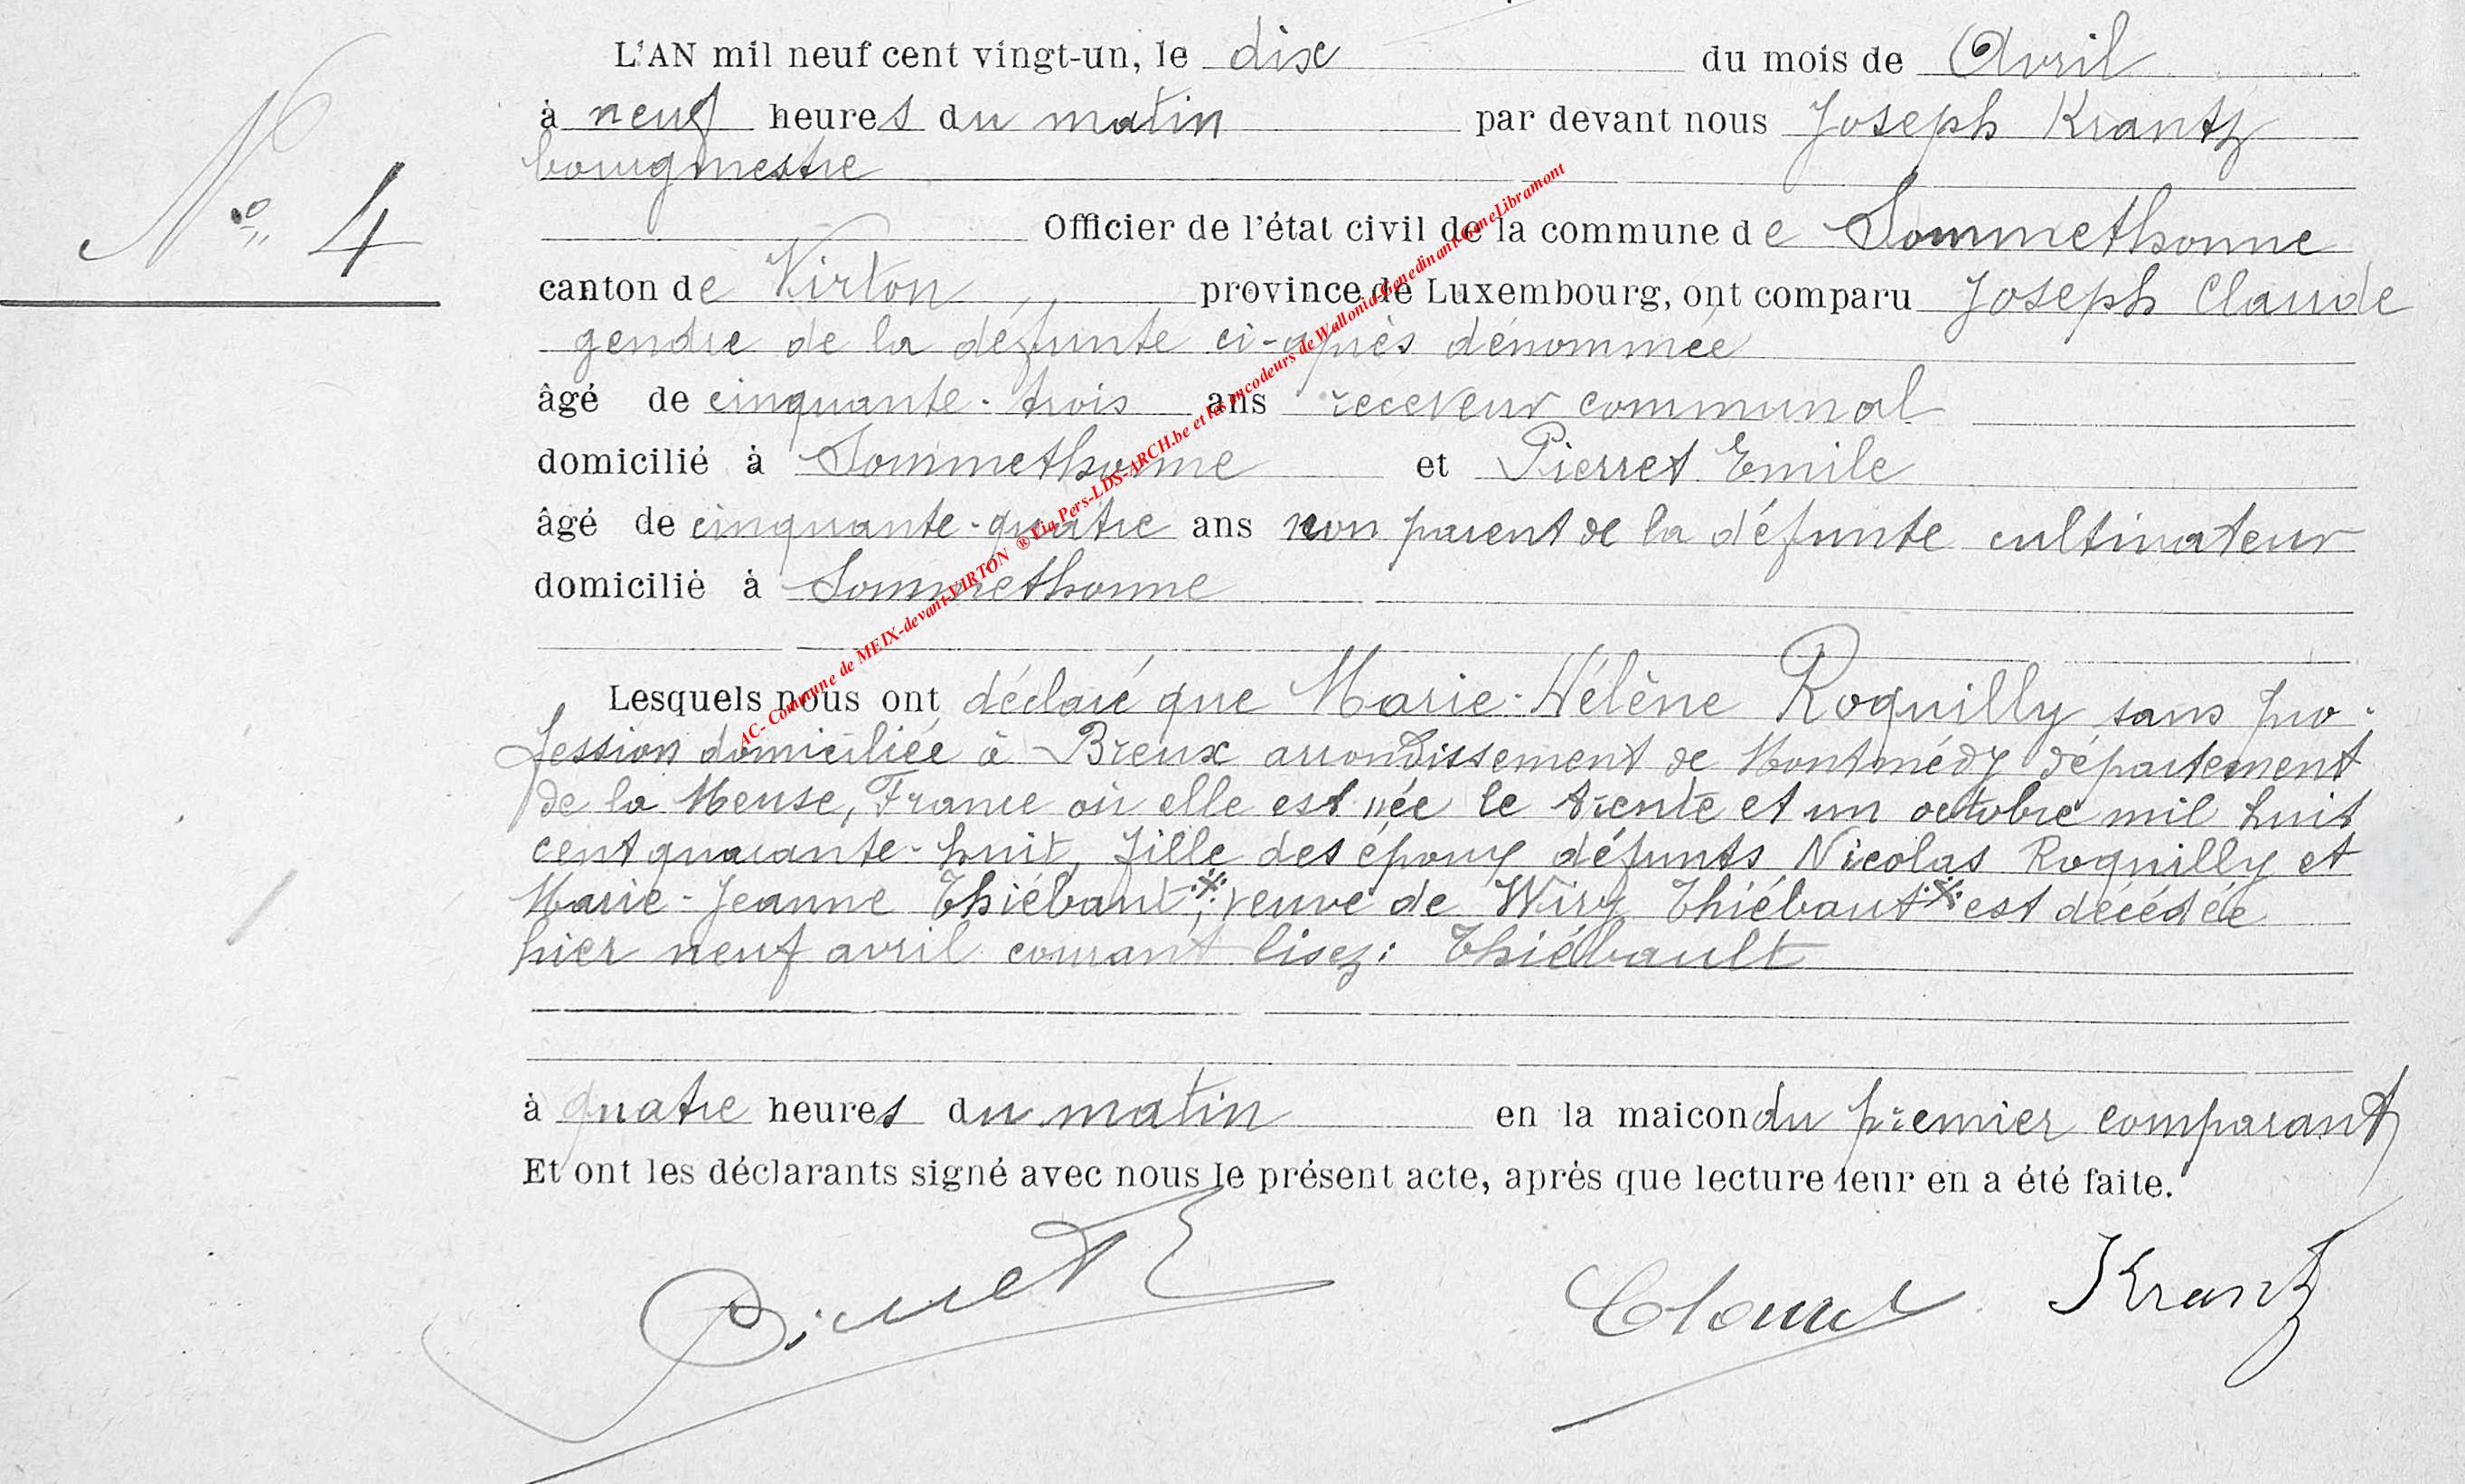 L'AN mil neuf cent vingt-un, le dix du mois de Avril
à neuf heures du matin par devant nous Joseph Krantz
bourgmestre
N° 4
Officier de l'état civil de la commune de Sommethonne
canton de Virton province de Luxembourg, ont comparu Joseph Claude
gendre de la défunte ci-après dénommée
âgé de cinquante-trois ans receveur communal
domicilié à Sommethonne et Pierret Emile
âgé de cinquante-quatre ans non parent de la défunte cultivateur
domicilié à Sommethonne
Lesquels nous ont déclaré que Marie-Hélène Roquilly sans pro-
fession domiciliée à Breux arrondissement de Montmédy département
de la Meuse, France où elle est née le trente et un octobre mil huit
cent quarante-huit, fille des époux défunts Nicolas Roquilly et
Marie-Jeanne Thiébaut※, veuve de Wiry Thiébaut※ est décédée
hier neuf avril courant lisez: Thiébault
à quatre heures du matin en la maicon du premier comparant
Et ont les déclarants signé avec nous le présent acte, après que lecture leur en a été faite.
Pierret E Claude Krantz
AC- Commune de MEIX-devant-VIRTON ® Via Pers-LDS-ARCH.be et les encodeurs de Wallonia-Genedinant-GmeLibramont